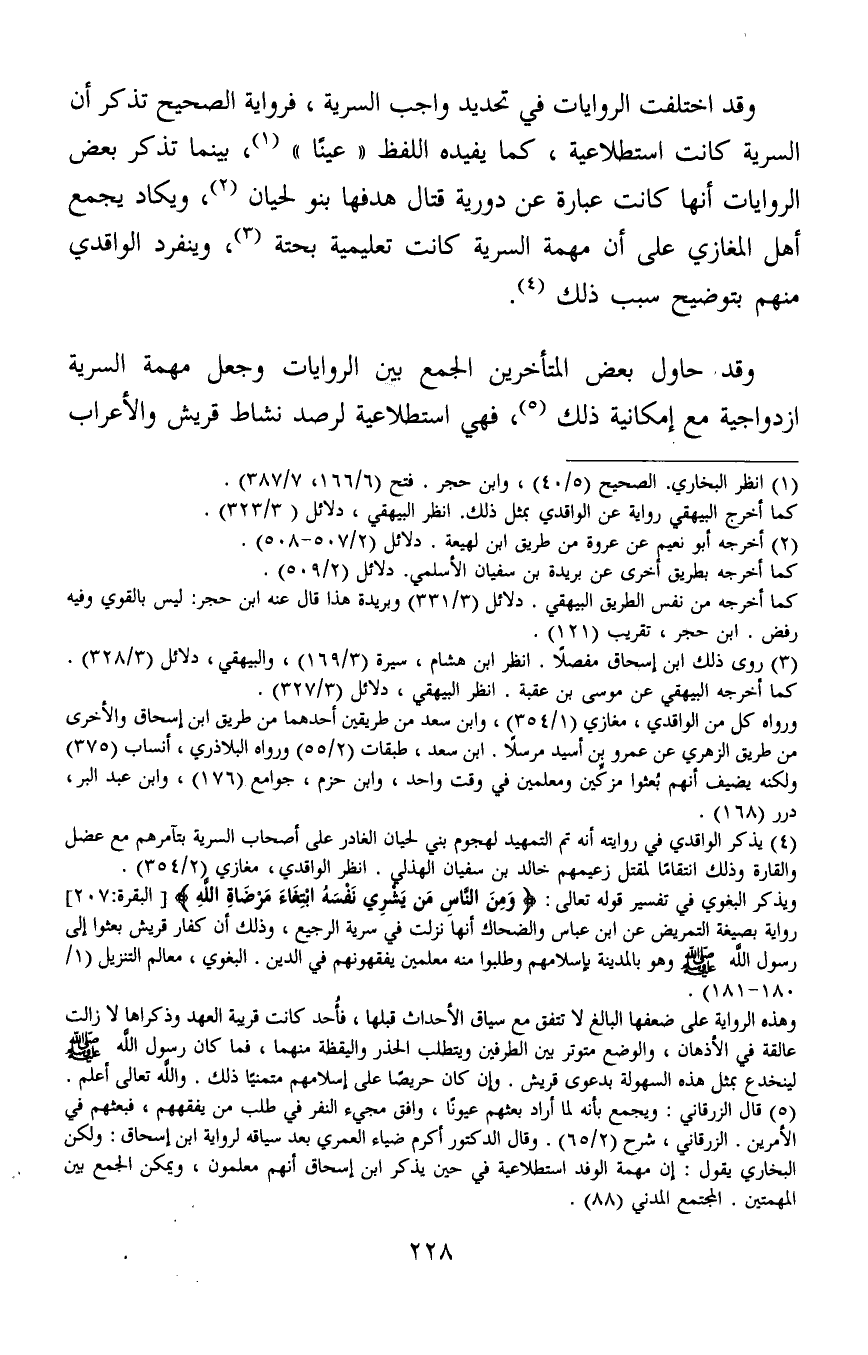 وقد اختلفت الروايات في تحديد واجب السرية ، فرواية الصحيح تذكر أن
السرية كانت استطلاعية ، كما يفيده اللفظ « عينًا » (١)، بينما تذكر بعض
الروايات أنها كانت عبارة عن دورية قتال هدفها بنو لحيان (٢)، ويكاد يجمع
أهل المغازي على أن مهمة السرية كانت تعليمية بحتة (٣)، وينفرد الواقدي
منهم بتوضيح سبب ذلك (٤).
وقد حاول بعض المتأخرين الجمع بين الروايات وجعل مهمة السرية
ازدواجية مع إمكانية ذلك (٥)، فهي استطلاعية لرصد نشاط قريش والأعراب
(١) انظر البخاري. الصحيح (٤٠/٥) ، وابن حجر . فتح (١٦٦/٦، ٣٨٧/٧) .
كما أخرج البيهقي رواية عن الواقدي بمثل ذلك. انظر البيهقي ، دلائل ( ٣٢٣/٣) .
(٢) أخرجه أبو نعيم عن عروة من طريق ابن لهيعة . دلائل (٥٠٧/٢-٥٠٨) .
كما أخرجه بطريق أخرى عن بريدة بن سفيان الأسلمي. دلائل (٥٠٩/٢) .
كما أخرجه من نفس الطريق البيهقي . دلائل (٣٣١/٣) وبريدة هذا قال عنه ابن حجر: ليس بالقوي وفيه
رفض . ابن حجر ، تقريب (١٢١) .
(٣) روى ذلك ابن إسحاق مفصلًا . انظر ابن هشام ، سيرة (١٦٩/٣) ، والبيهقي ، دلائل (٣٢٨/٣) .
كما أخرجه البيهقي عن موسى بن عقبة . انظر البيهقي ، دلائل (٣٢٧/٣) .
ورواه كل من الواقدي ، مغازي (٣٥٤/١) ، وابن سعد من طريقين أحدهما من طريق ابن إسحاق والأخرى
من طريق الزهري عن عمرو بن أسيد مرسلًا . ابن سعد ، طبقات (٥٥/٢) ورواه البلاذري ، أنساب (٣٧٥)
ولكنه يضيف أنهم بُعثوا مزكّين ومعلمين في وقت واحد ، وابن حزم ، جوامع (١٧٦) ، وابن عبد البر ،
درر (١٦٨) .
(٤) يذكر الواقدي في روايته أنه تم التمهيد لهجوم بني لحيان الغادر على أصحاب السرية بتآمرهم مع عضل
والقارة وذلك انتقامًا لمقتل زعيمهم خالد بن سفيان الهذلي . انظر الواقدي ، مغازي (٣٥٤/٢) .
ويذكر البغوي في تفسير قوله تعالى : ﴿ وَمِنَ النَّاسِ مَن يَشْرِي نَفْسَهُ ابْتِغَاءَ مَرْضَاةِ اللَّهِ ﴾ [ البقرة:٢٠٧]
رواية بصيغة التمريض عن ابن عباس والضحاك أنها نزلت في سرية الرجيع ، وذلك أن كفار قريش بعثوا إلى
رسول اللَّه ﷺ وهو بالمدينة بإسلامهم وطلبوا منه معلمين يفقهونهم في الدين . البغوي ، معالم التنزيل (١/
١٨٠-١٨١) .
وهذه الرواية على ضعفها البالغ لا تتفق مع سياق الأحداث قبلها ، فأُحد كانت قريبة العهد وذكراها لا زالت
عالقة في الأذهان ، والوضع متوتر بين الطرفين ويتطلب الحذر واليقظة منهما ، فما كان رسول اللَّه ﷺ
لينخدع بمثل هذه السهولة بدعوى قريش . وإن كان حريصًا على إسلامهم متمنيًا ذلك . واللَّه تعالى أعلم .
(٥) قال الزرقاني : ويجمع بأنه لما أراد بعثهم عيونًا ، وافق مجيء النفر في طلب من يفقههم ، فبعثهم في
الأمرين . الزرقاني ، شرح (٦٥/٢) . وقال الدكتور أكرم ضياء العمري بعد سياقه لرواية ابن إسحاق : ولكن
البخاري يقول : إن مهمة الوفد استطلاعية في حين يذكر ابن إسحاق أنهم معلمون ، ويمكن الجمع بين
المهمتين . المجتمع المدني (٨٨) .
٢٢٨